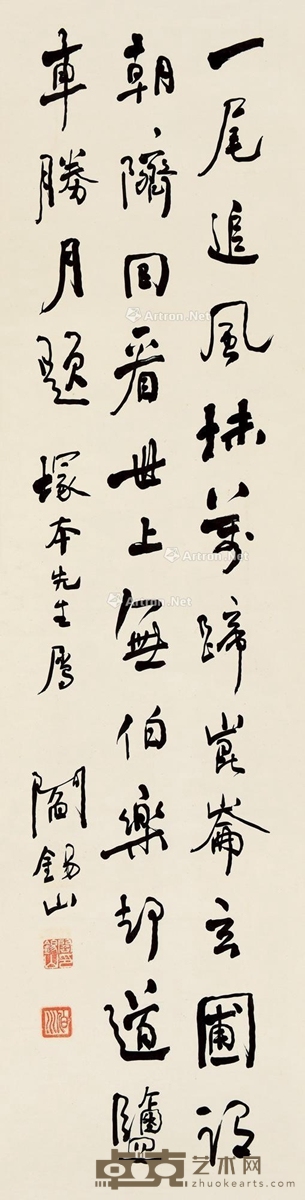 一尾追風抹萬蹄崑崙玄圃謂
朝隮回看世上無伯樂却道鹽
車勝月題 塚本先生屬 閻錫山
Artron.Net
Artron.Net
Artron.Net
卓克艺术网
zhuokearts.com